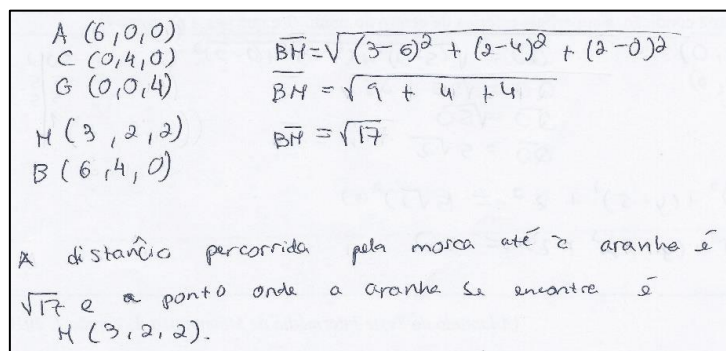 A (6,0,0)
C (0,4,0)
G (0,0,4)
M (3,2,2)
B (6,4,0)
B̅M̅=√(3-6)² + (2-4)² + (2-0)²
B̅M̅ = √9 + 4 + 4
B̅M̅ = √17
A distância percorrida pela mosca até à aranha é
√17 e o ponto onde a aranha se encontra é
M (3,2,2).